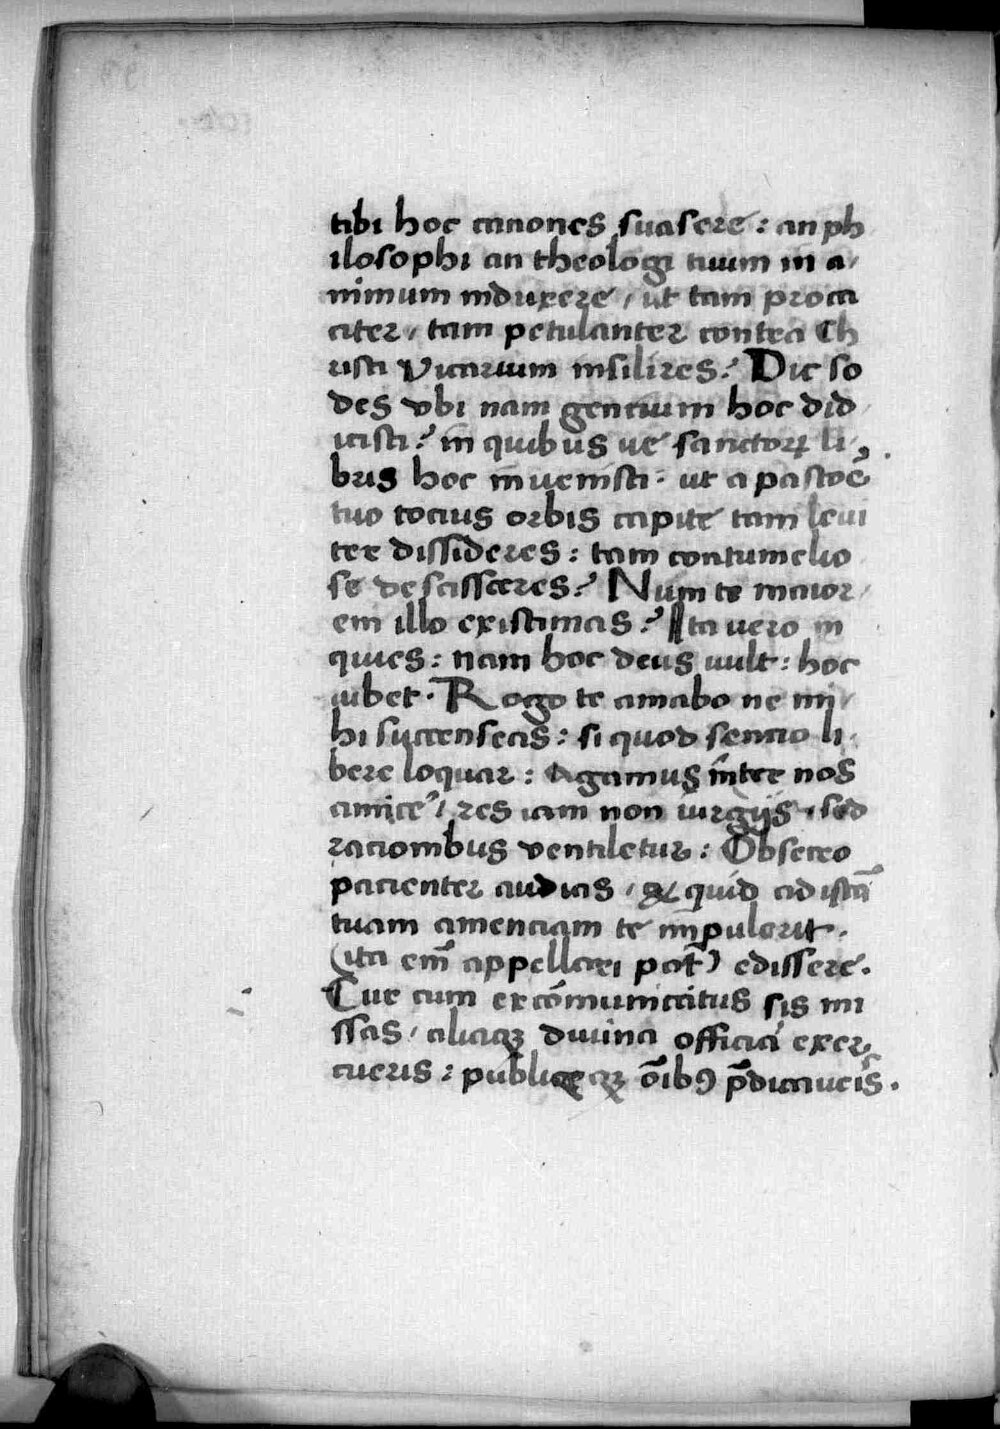 tibi hoc canones suasere : an ph
ilosophi an theologi tuum in a/
nimum induxere / ut tam proca
citer / tam petulanter contra Ch
risti Vicarium insilires ? Dic so
des vbi nam gentium hoc did/
icisti ? in quibus ue sanctoꝝ li/
bris hoc inuenisti : ut a pastore
tuo tocius orbis capite tam leui
ter dissideres : tam contumelio
se descissceres ? Num te maior/
em illo existimas ? Ita vero in
quies : nam hoc deus uult : hoc
iubet . Rogo te amabo ne mi/
hi succenseas : si quod sencio li/
bere loquar : Agamus inter nos
amice / res iam non iurgijs / sed
racionibus ventiletur : Obsecro
pacienter audias / & quid ad istā
tuam amenciam te impulerit .
(ita em̄ appellari pot̄) edissere .
Cur cum excōmunicatus sis mi
ssas / aliaqꝫ diuina officia exer/
cueris : publiceqꝫ ōibꝰ p̄dicaueris .